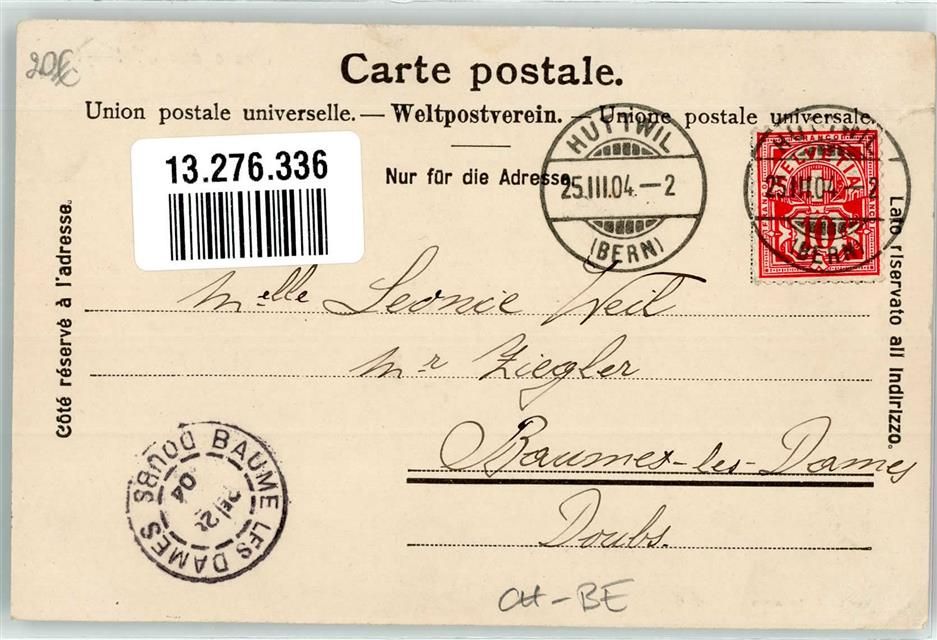 Carte postale.
Union postale universelle. — Weltpostverein. — Unione postale universale.
13.276.336
Nur für die Adresse
HUTTWIL
25.III.04.–2
(BERN)
HUTTWIL
25.III.04.–2
(BERN)
FRANCO
HELVETIA
10
Côté réservé à l'adresse.
Lato riservato all Indirizzo.
Melle Leonie Weil
Mr Ziegler
Baumes-les-Dames
Doubs.
BAUME LES DAMES DOUBS
04
CH-BE